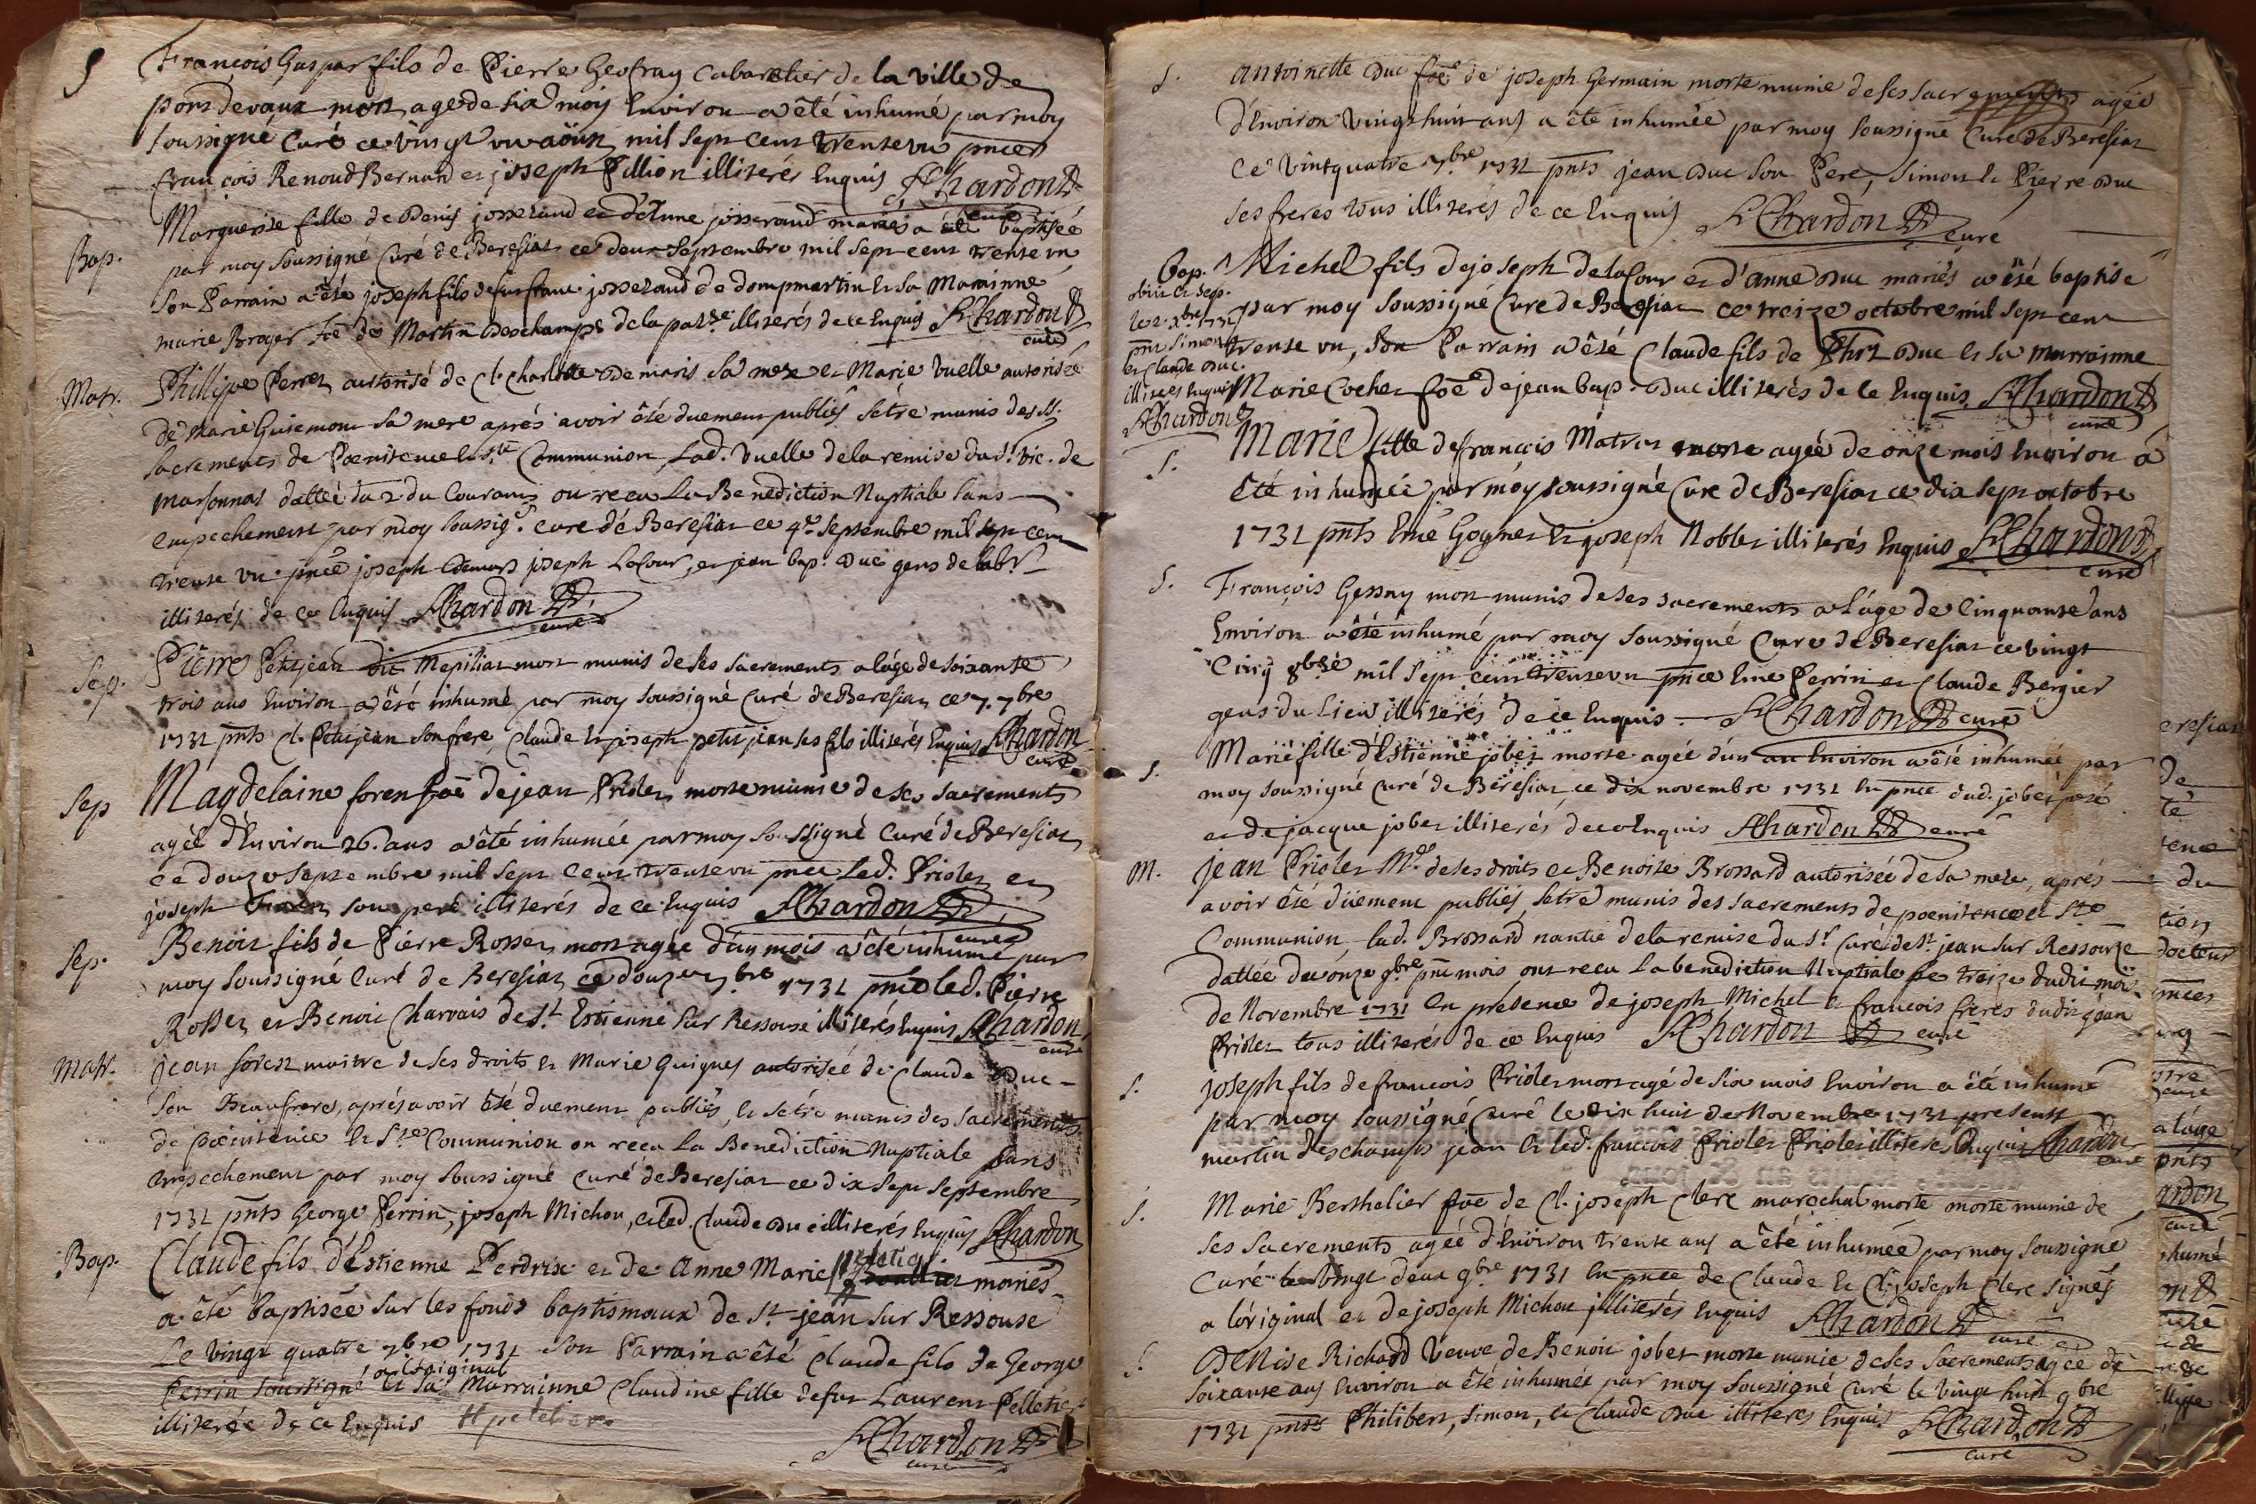 S
François Gaspar fils de Pierre Geofray Cabaretier de la ville de
pont devaux mort agé de six mois Environ a êté inhumé par moy
soussigné Curé ce vingt un août mil sept cent trente un pnces
françois Renoud Bernard et joseph Pillion illiterés Enquis JChardon
curé
Bap.
Marguerite fille de Denis josserand et d'Etiene josserand mariés a été baptisée
par moy soussigné Curé de Beresiat ce deux Septembre mil sept cent trente un
son Parrain a êté joseph fils de fut franc. josserand de dompmartin et sa Marainne
marie Broyer fe de Martin Deschamps de la paroisse illiterés de ce Enquis JChardon
curé
Matr.
Phillippe Perret autorisé de Cl. Charlotte Demaris sa mere et Marie Vuelle autorisée
de Marie Guiemont sa mere aprés avoir êté duement publiés s'etre munis des SS.
Sacrements de Poenitence et Ste Communion, Lad. Vuelle de la remise du Sr. Vic. de
marsonnas dattée du 2 du Courant, ont reçu La Benediction Nuptiale sans
empechement par moy soussigné. Curé de Beresiat ce 4e Septembre mil sept cent
trente un. pnce joseph joseph LaCour, et jean bap. Duc gens de labr
illiterés de ce Enquis JChardon
curé
Sep.
Pierre Petitjean dit Mepiliat mort munis de ses sacrements a l'âge de soixante
trois ans Environ a êté inhumé par moy soussigné Curé de Beresiat ce 7. 7bre
1731 pnts Cl. Petitjean son frere, Claude et joseph petitjean ses fils illiterés Enquis JChardon
curé
Sep
Magdelaine foren foe de jean Prioler morte munie de ses sacrements
agée d'Environ 26. ans a êté inhumée par moy soussigné Curé de Beresiat
ce douze Septembre mil sept cent trente un pnce Led. Prioler et
joseph son pere illiterés de ce Enquis JChardon
curé
Sep.
Benoit fils de Pierre Rosset mort agée d'un mois a êté inhumé par
moy soussigné Curé de Beresiat ce douze 7bre 1731 pnce led. Pierre
Rosset et Benoit Charvais de St Estienne sur Ressouse illiterés Enquis JChardon
curé
Matr.
jean foren maitre de ses droits et Marie Guigues autorisée de Claude Duc
son Beaufrere, aprés avoir êté duement publiés, et s'etre munis des Sacrements
de poenitence et Ste Communion on reçu La Benediction Nuptiale sans
empechement par moy soussigné Curé de Beresiat ce dix sept Septembre
1731 pnts George Perrin, joseph Michon, et led. Claude Duc illiterés Enquis JChardon
Bap.
Claude fils d'Estienne Perdrix et de Anne Marie mariés
a êté baptisée sur les fonds baptismaux de St jean sur Ressouse
Le vingt quatre 7bre 1731 son Parrain a êté Claude fils de George
Perrin soussigné a l'original et sa Marrainne Claudine fille de fut Laurent Pelletier
illiterée de ce Enquis
JChardon
curé
S.
Antoinette Duc foe de joseph Germain morte munie de ses sacrements agée
d'Environ vingt huit ans a êté inhumée par moy soussigné Curé de Beresiat
Ce vintquatre 7bre 1731 pnts jean Duc son Pere, Simon et Pierre Duc
ses freres tous illiterés de ce Enquis JChardon
curé
Bap.
obiit et sep.
le 2. xbre 1731
pnt Simon
et Claude Duc.
illiterés Enquis
JChardon
Michel fils de joseph de la Cour et d'anne Duc mariés a êté baptisé
par moy soussigné Curé de Beresiat ce treize octobre mil sept cent
trente un, son Parrain a êté Claude fils de Phrt Duc et sa marrainne
Marie Cochet foe de jean bap. Duc illiterés de ce Enquis JChardon
curé
S.
Marie fille de françois Matrat morte agée de onze mois Environ a
êté inhumée par moy soussigné Curé de Beresiat ce dix sept octobre
1731 pnts Emé Gognet et joseph Noblet illiterés Enquis JChardon
curé
S.
François Gessny mort munis de ses sacrements a l'âge de Cinquante ans
Environ a êté inhumé par moy soussigné Curé de Beresiat ce vingt
Cinq 8bre mil sept cent trente un pnce Eme Perrin et Claude Bergier
gens du lieu illiterés de ce Enquis JChardon curé
S.
Marie fille d'Estienne jobet morte agée d'un an Environ a êté inhumée par
moy soussigné Curé de Beresiat ce dix novembre 1731 En pnce dud. jobet peré
et de jacque jobet illiterés de ce Enquis JChardon curé
M.
jean Prioler Me de ses droits et Benoite Brossard autorisée de sa mere, aprés
avoir êté düement publiés, s'etre munis des sacrements de poenitence et Ste
Communion, Lad. Brossard nantie de la remise du Sr Curé de St jean sur Ressouze
dattée du onze 9bre pnt mois, ont reçu La benediction Nuptiale ce treize dudit moi
de Novembre 1731 En présence de joseph Michel et françois freres dudit jean
Prioler tous illiterés de ce Enquis JChardon curé
S.
joseph fils de françois Prioler mort agé de six mois Environ a êté inhumé
par moy soussigné Curé le dix huit de Novembre 1731 presents
martin Deschamps jean et led. françois Prioler Prioler illiteres Enquis JChardon
curé
S.
Marie Berthelier foe de Cl. joseph Clerc marechal morte morte munie de
ses sacrements agée d'Environ trente ans a êté inhumée par moy soussigné
Curé le vingt deux 9bre 1731 En pnce de Claude et Cl. joseph Clerc signés
a l'original et de joseph Michon illiterés Enquis JChardon
curé
S.
Denise Richard Veuve de Benoit jobet morte munie de ses sacrements agée de
soixante ans Environ a êté inhumée par moy soussigné Curé le vingt huit 9bre
1731 pnts Philibert, Simon, et Claude Duc illiteres Enquis JChardon
curé